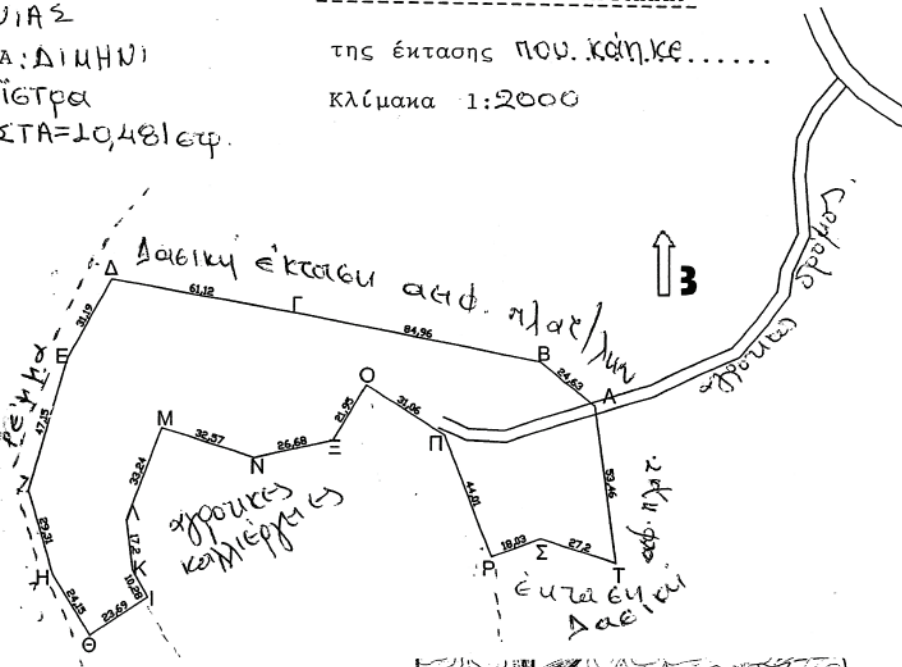 ΝΙΑΣ
Α: ΔΙΜΗΝΙ
ΐστρα
ΣΤΑ=10,481 στρ.
της έκτασης που κάηκε......
Κλίμακα 1:2000
Δασική έκταση
αγροτικός δρόμος
Β
ρέμμα
αγροτικές
καλλιέργειες
έκταση
Δασική
Δ
61,12
Γ
84,96
Β
24,63
Α
31,19
Ε
47,15
Ζ
29,31
Η
24,15
Θ
23,69
Ι
10,28
Κ
17,2
Λ
33,24
Μ
32,57
Ν
26,68
Ξ
21,95
Ο
31,06
Π
44,01
Ρ
18,03
Σ
27,2
Τ
53,46